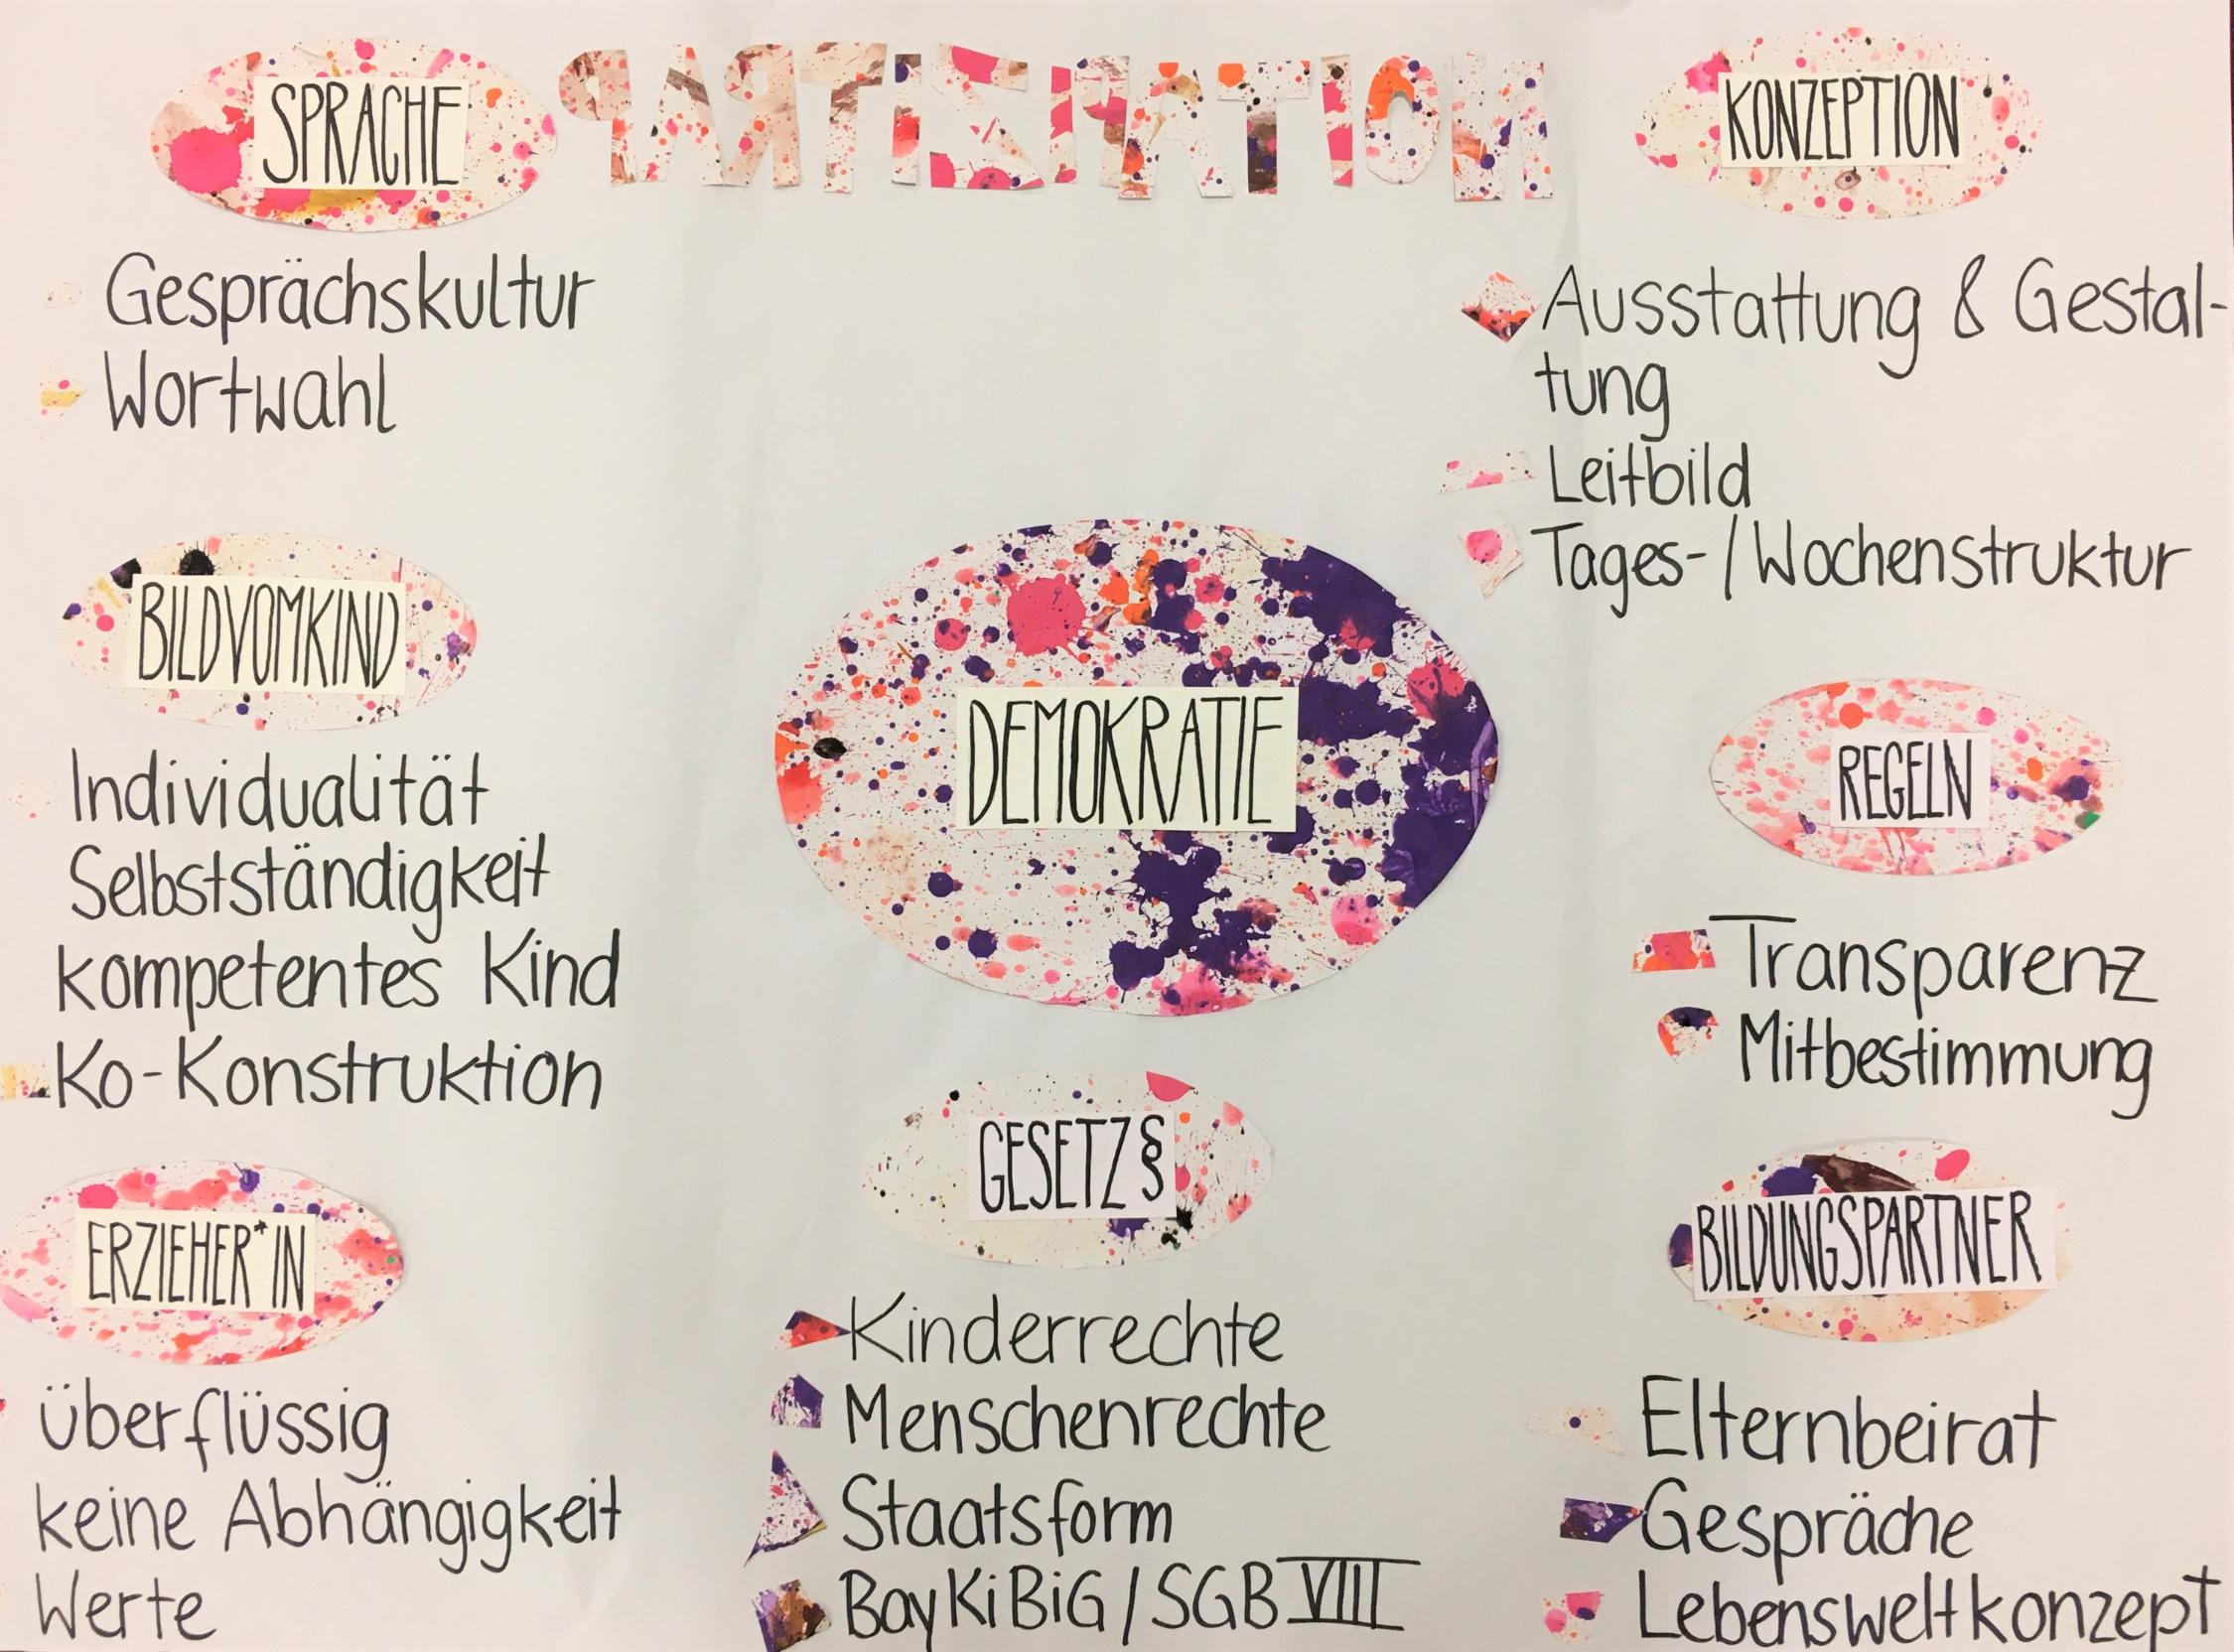 SPRACHE
Gesprächskultur
Wortwahl
PARTIZIPATION
KONZEPTION
Ausstattung & Gestal-
tung
Leitbild
Tages-/Wochenstruktur
BILDVOMKIND
Individualität
Selbstständigkeit
kompetentes Kind
Ko-Konstruktion
DEMOKRATIE
REGELN
Transparenz
Mitbestimmung
ERZIEHER*IN
überflüssig
keine Abhängigkeit
Werte
GESETZ§
Kinderrechte
Menschenrechte
Staatsform
BayKiBiG/SGB VIII
BILDUNGSPARTNER
Elternbeirat
Gespräche
Lebensweltkonzept